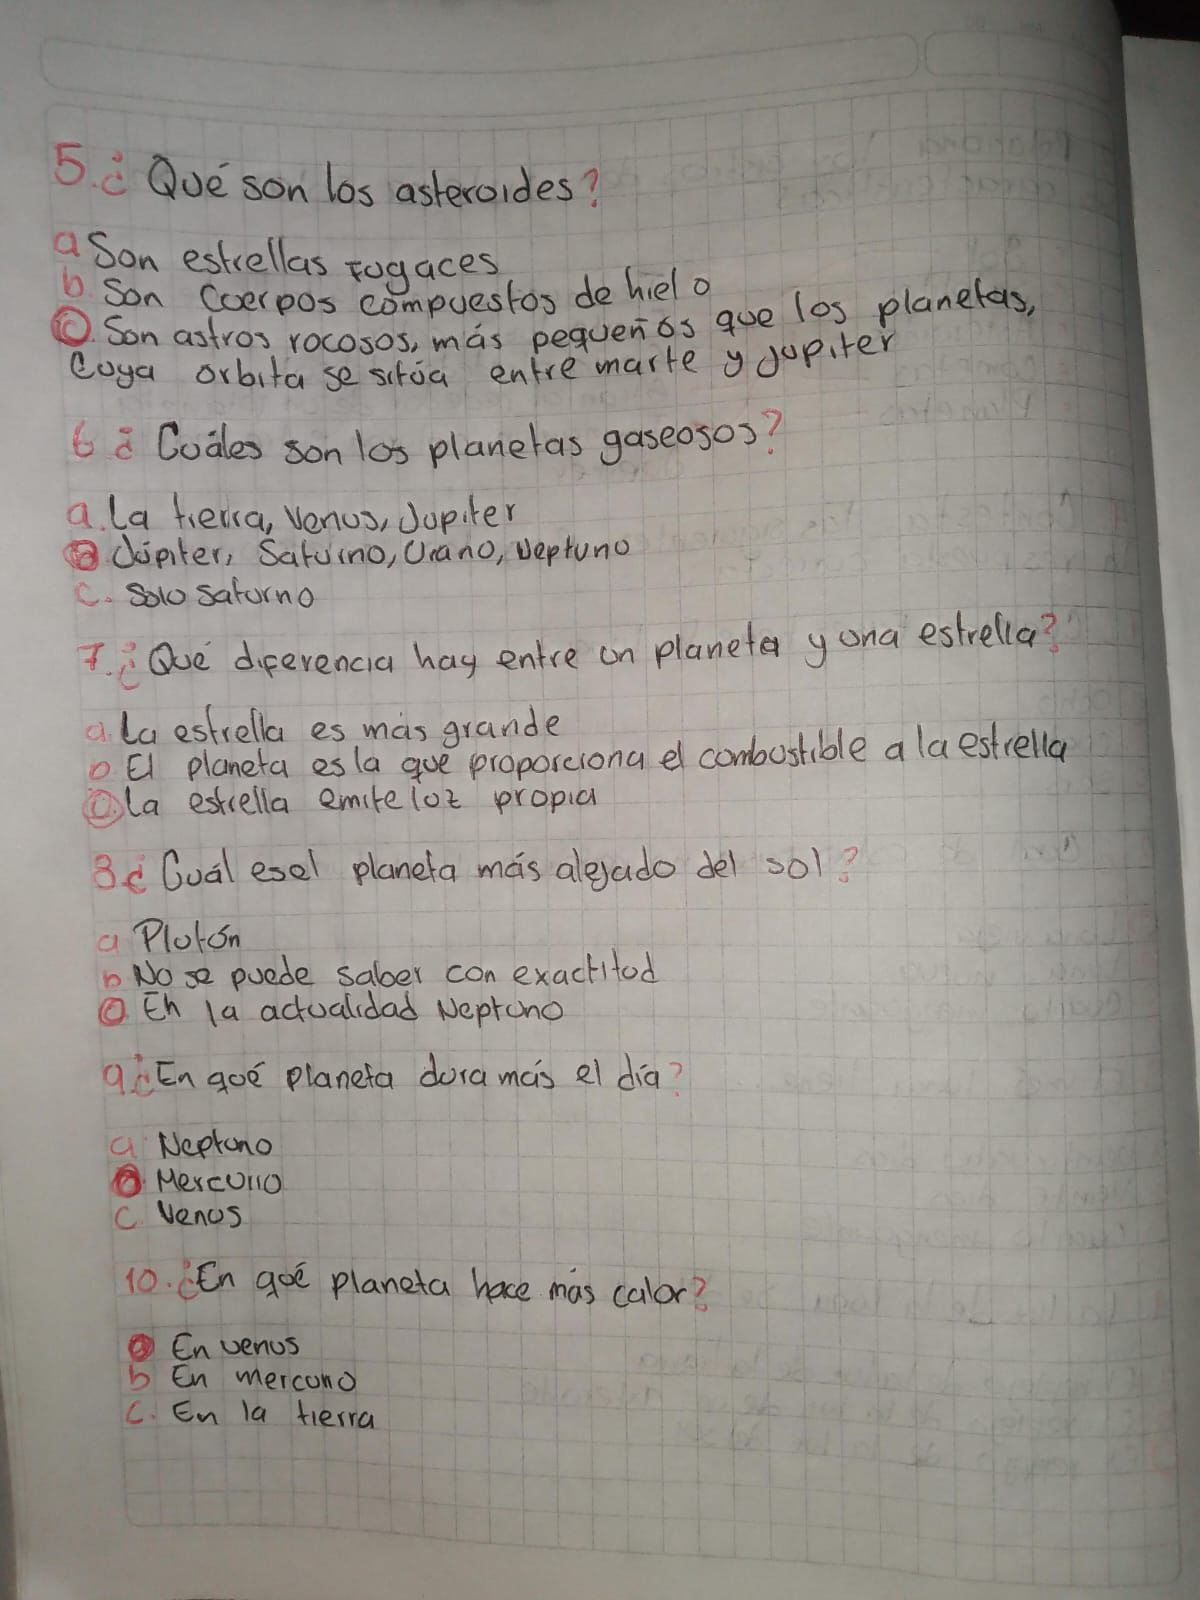 5. ¿Qué son los asteroides?
a Son estrellas fugaces
b. Son cuerpos compuestos de hielo
c. Son astros rocosos, más pequeños que los planetas,
cuya orbita se sitúa entre marte y jupiter
6 ¿Cuáles son los planetas gaseosos?
a. La tierra, Venus, Jupiter
b Júpiter, Saturno, Urano, Neptuno
c. Solo Saturno
7. ¿Qué diferencia hay entre un planeta y una estrella?
a. La estrella es más grande
b El planeta es la que proporciona el combustible a la estrella
c. La estrella emite luz propia
8 ¿Cuál es el planeta más alejado del sol?
a Plutón
b No se puede saber con exactitud
c En la actualidad Neptuno
9 ¿En qué planeta dura más el día?
a Neptuno
b Mercurio
c Venus
10. ¿En qué planeta hace más calor?
a En venus
b En mercurio
c. En la tierra